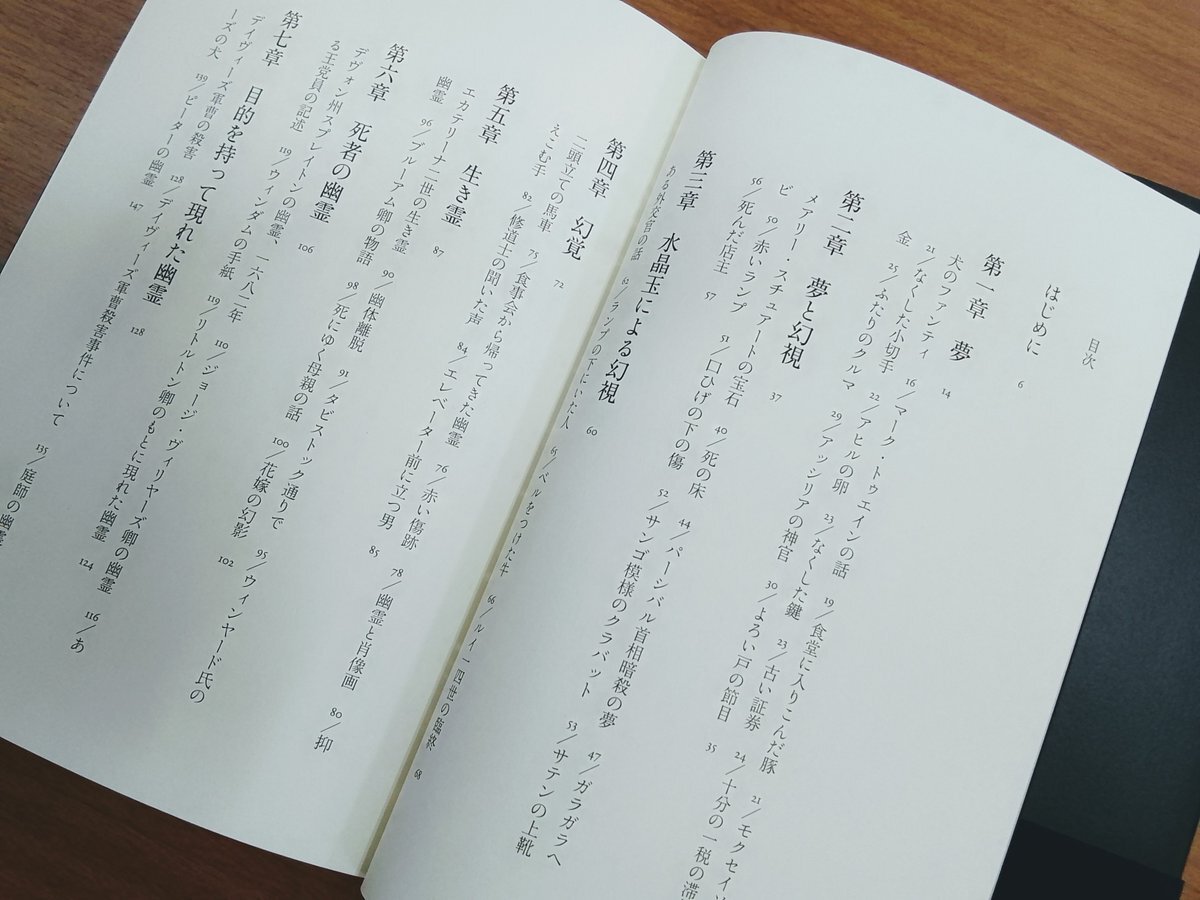 目次
はじめに 6
第一章 夢 14
犬のファンティ 16/マーク・トゥエインの話 19/食堂に入りこんだ豚 21/モクセイ
21/なくした小切手 22/アヒルの卵 23/なくした鍵 23/古い証券 24/十分の一税の滞
金 25/ふたりのクルマ 29/アッシリアの神官 30/よろい戸の節目 35
第二章 夢と幻視 37
メアリー・スチュアートの宝石 40/死の床 44/パーシバル首相暗殺の夢 47/ガラガラヘ
ビ 50/赤いランプ 51/口ひげの下の傷 52/サンゴ模様のクラバット 53/サテンの上靴
56/死んだ店主 57
第三章 水晶玉による幻視 60
ある外交官の話 62/ランプの下にいた人 65/ベルをつけた牛 66/ルイ一四世の臨終 68
第四章 幻覚 72
二頭立ての馬車 75/食事会から帰ってきた幽霊 76/赤い傷跡 78/幽霊と肖像画 80/抑
えこむ手 82/修道士の聞いた声 84/エレベーター前に立つ男 85
第五章 生き霊 87
エカテリーナ二世の生き霊 90/幽体離脱 91/タビストック通りで 95/ウィンヤード氏の
幽霊 96/ブルーアム卿の物語 98/死にゆく母親の話 100/花嫁の幻影 102
第六章 死者の幽霊 106
デヴォン州スプレイトンの幽霊、一六八二年 110/ジョージ・ヴィリヤーズ卿の幽霊 116/あ
る王党員の記述 119/ウィンダムの手紙 119/リトルトン卿のもとに現れた幽霊 124
第七章 目的を持って現れた幽霊 128
デイヴィーズ軍曹の殺害 128/デイヴィーズ軍曹殺害事件について 135/庭師の幽霊
ーズの犬 139/ピーターの幽霊 147